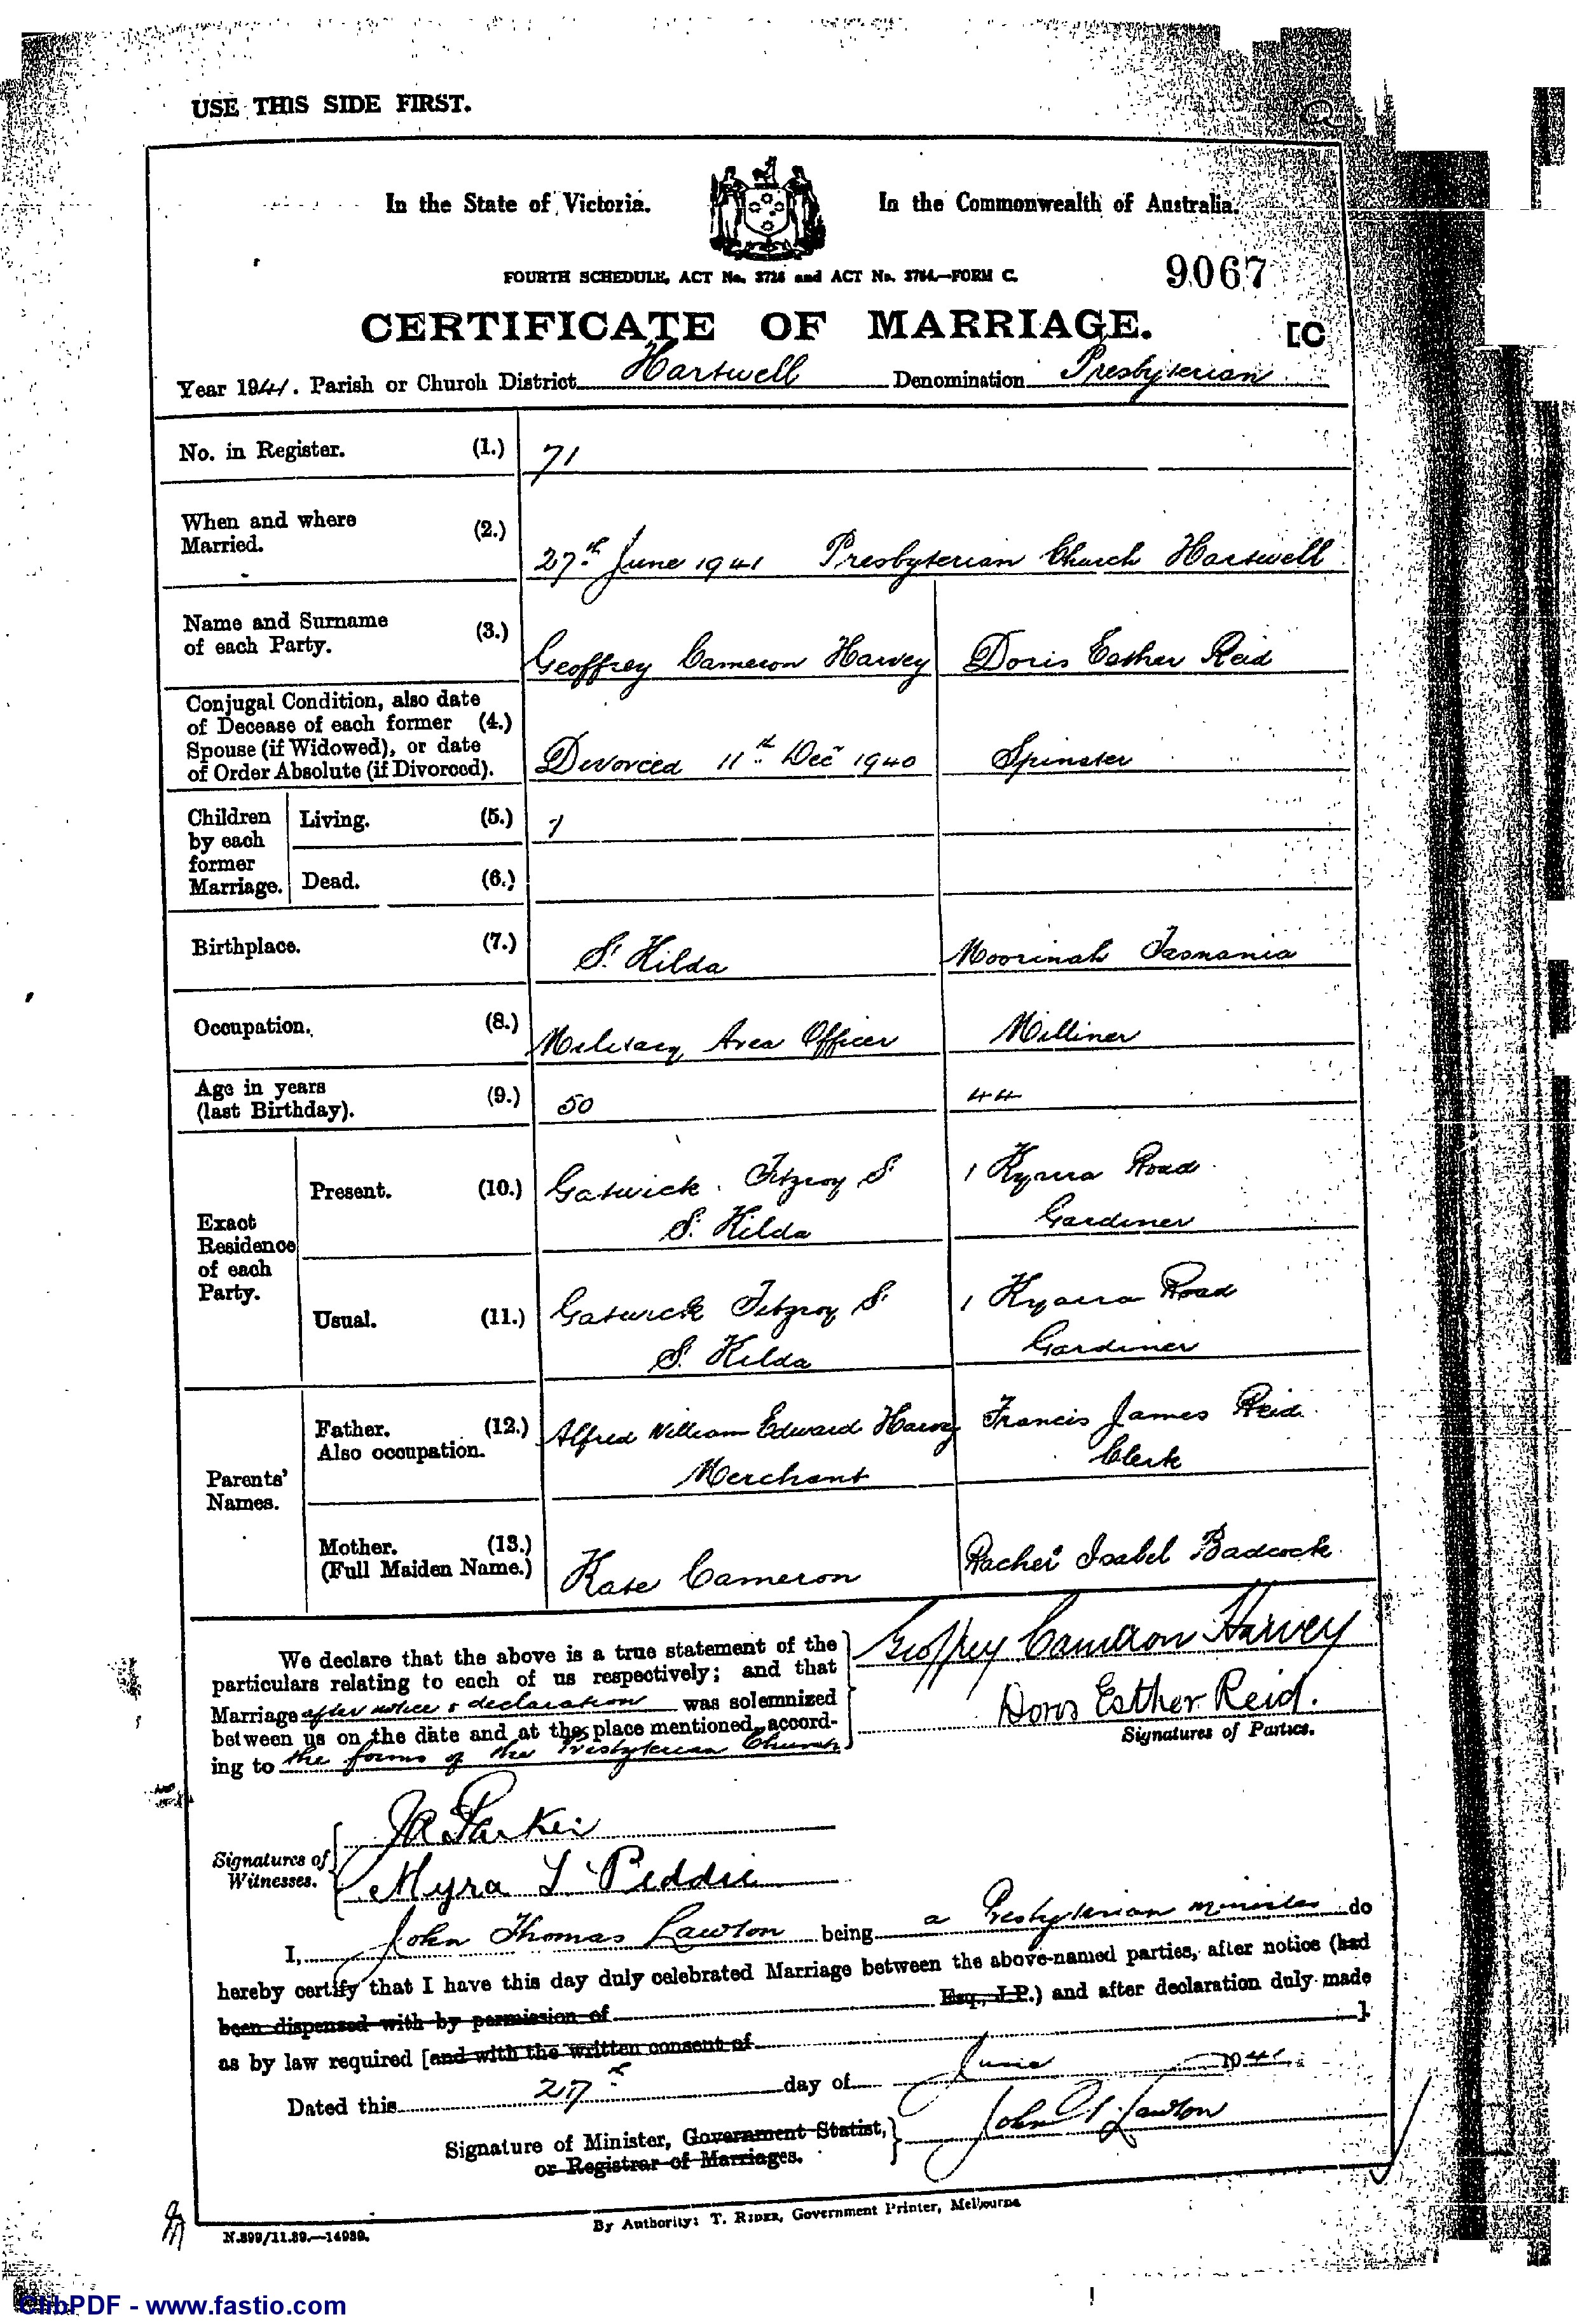 USE THIS SIDE FIRST.
In the State of Victoria. In the Commonwealth of Australia.
FOURTH SCHEDULE, ACT No. 3726 and ACT No. 3764.—FORM C. 9067
CERTIFICATE OF MARRIAGE. [C
Year 1941. Parish or Church District Hartwell Denomination Presbyterian
No. in Register. (1.) 71
When and where
Married. (2.) 27th June 1941 Presbyterian Church Hartwell
Name and Surname
of each Party. (3.) Geoffrey Cameron Harvey Doris Esther Reid
Conjugal Condition, also date
of Decease of each former (4.)
Spouse (if Widowed), or date
of Order Absolute (if Divorced). Divorced 11th Dec 1940 Spinster
Children
by each
former
Marriage.
Living. (5.) 1
Dead. (6.)
Birthplace. (7.) St Kilda Moorinah Tasmania
Occupation. (8.) Military Area Officer Milliner
Age in years
(last Birthday). (9.) 50 44
Exact
Residence
of each
Party.
Present. (10.) Gatwick. Fitzroy St 1 Kyarra Road
St. Kilda Gardiner
Usual. (11.) Gatwick Fitzroy St 1 Kyarra Road
St. Kilda Gardiner
Parents'
Names.
Father. (12.) Alfred William Edward Harvey Francis James Reid
Also occupation. Merchant Clerk
Mother. (13.)
(Full Maiden Name.) Kate Cameron Rachel Isabel Badcock
We declare that the above is a true statement of the
particulars relating to each of us respectively; and that
Marriage after notice & declaration was solemnized
between us on the date and at the place mentioned, accord-
ing to the forms of the Presbyterian Church
Geoffrey Cameron Harvey
Doris Esther Reid.
Signatures of Parties.
Signatures of
Witnesses.
J R Parker
Myra L Peddie
I, John Thomas Lawton being a Presbyterian minister do
hereby certify that I have this day duly celebrated Marriage between the above-named parties, after notice (had
been dispensed with by permission of Esq., J.P.) and after declaration duly made
as by law required [and with the written consent of ].
Dated this 27th day of June 1941
Signature of Minister, Government Statist,
or Registrar of Marriages. John T Lawton
N.899/11.39.—14939. By Authority: T. RIDER, Government Printer, Melbourne
ClibPDF - www.fastio.com